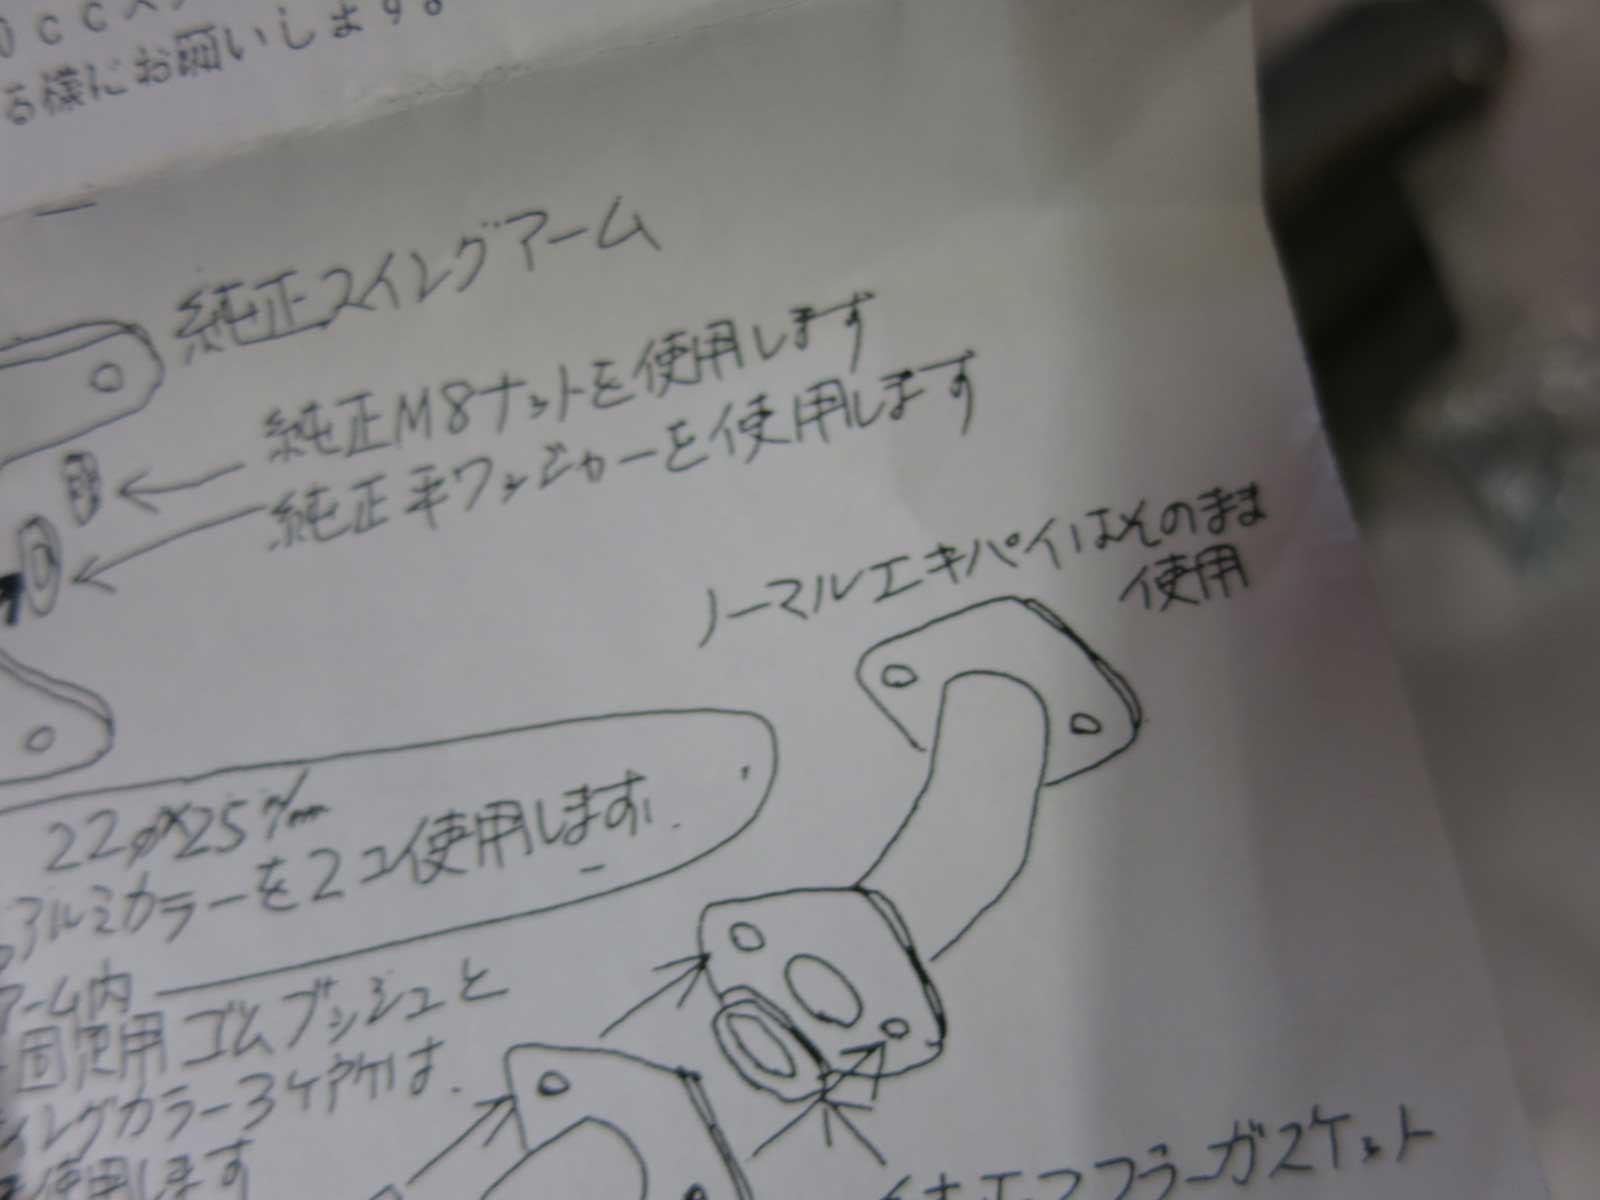 ０ｃｃス
る様にお願いします。
純正スイングアーム
純正M8ナットを使用します
純正平ワッシャーを使用します
ノーマルエキパイはそのまま
使用
22φ×25m/m
アルミカラーを2コ使用します.
アーム内
使用ゴムブッシュと
ングカラー3ケ所は.
使用します
マフラーガスケット